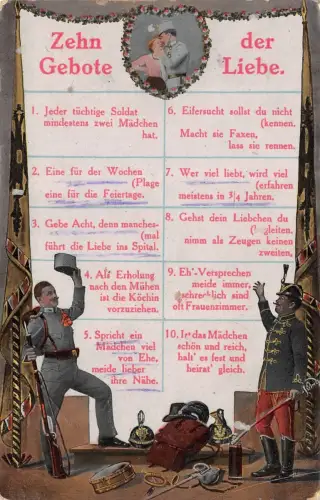 Zehn
Gebote
der
Liebe.
1. Jeder tüchtige Soldat
mindestens zwei Mädchen
hat.
2. Eine für der Wochen
(Plage
eine für die Feiertage.
3. Gebe Acht, denn manches-
(mal
führt die Liebe ins Spital.
4. Als Erholung
nach den Mühen
ist die Köchin
vorzuziehen.
5. Spricht ein
Mädchen viel
von Ehe,
meide lieber
ihre Nähe.
6. Eifersucht sollst du nicht
(kennen.
Macht sie Faxen,
lass sie rennen.
7. Wer viel liebt, wird viel
(erfahren
meistens in 3/4 Jahren.
8. Gehst dein Liebchen du
nimm als Zeugen keinen
zweiten.
9. Eh'-Versprechen
meide immer,
schrecklich sind
oft Frauenzimmer.
10. Ist das Mädchen
schön und reich,
halt' es fest und
heirat' gleich.